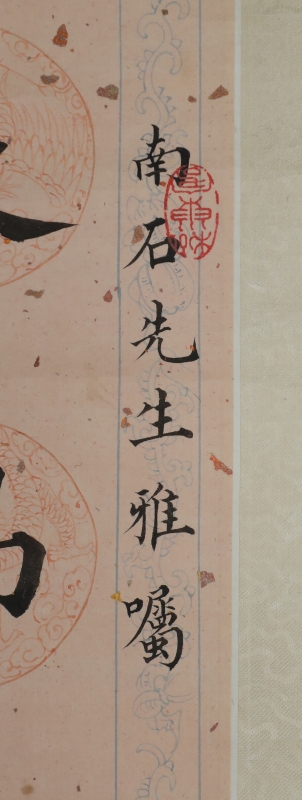 南石先生雅囑